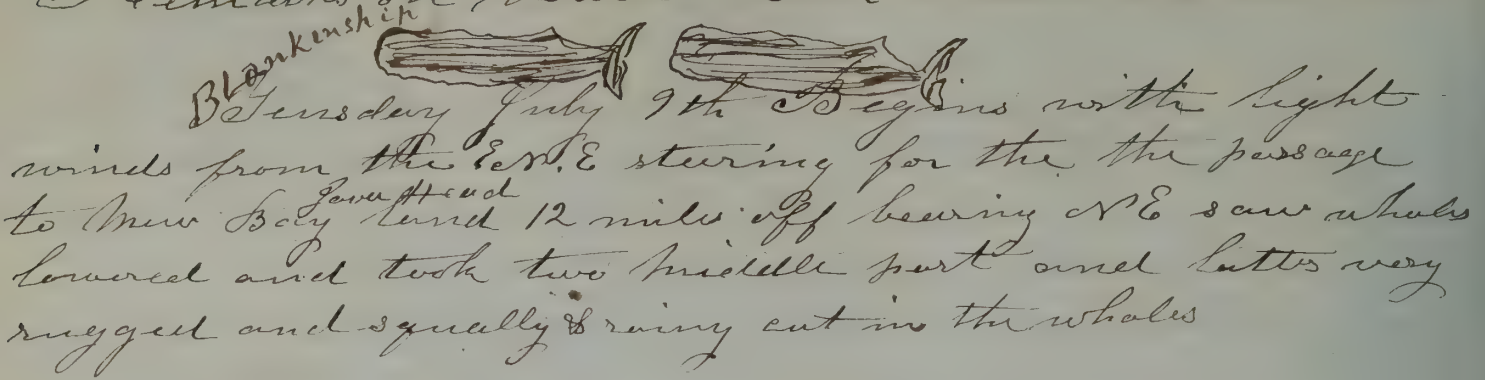 Remarks on
Blankenship
Tuesday July 9th Begins with light
winds from the E.N.E steering for the the passage
Java Head
to Mew Bay land 12 miles off bearing NE saw whales
lowered and took two middle part and latter very
rugged and squally & rainy cut in the whales